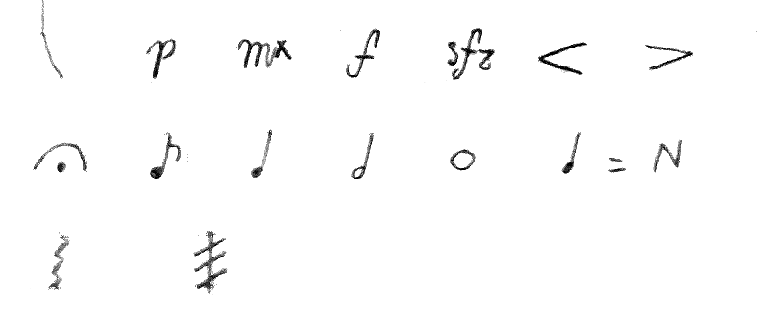 p mx f sfz < >
= N